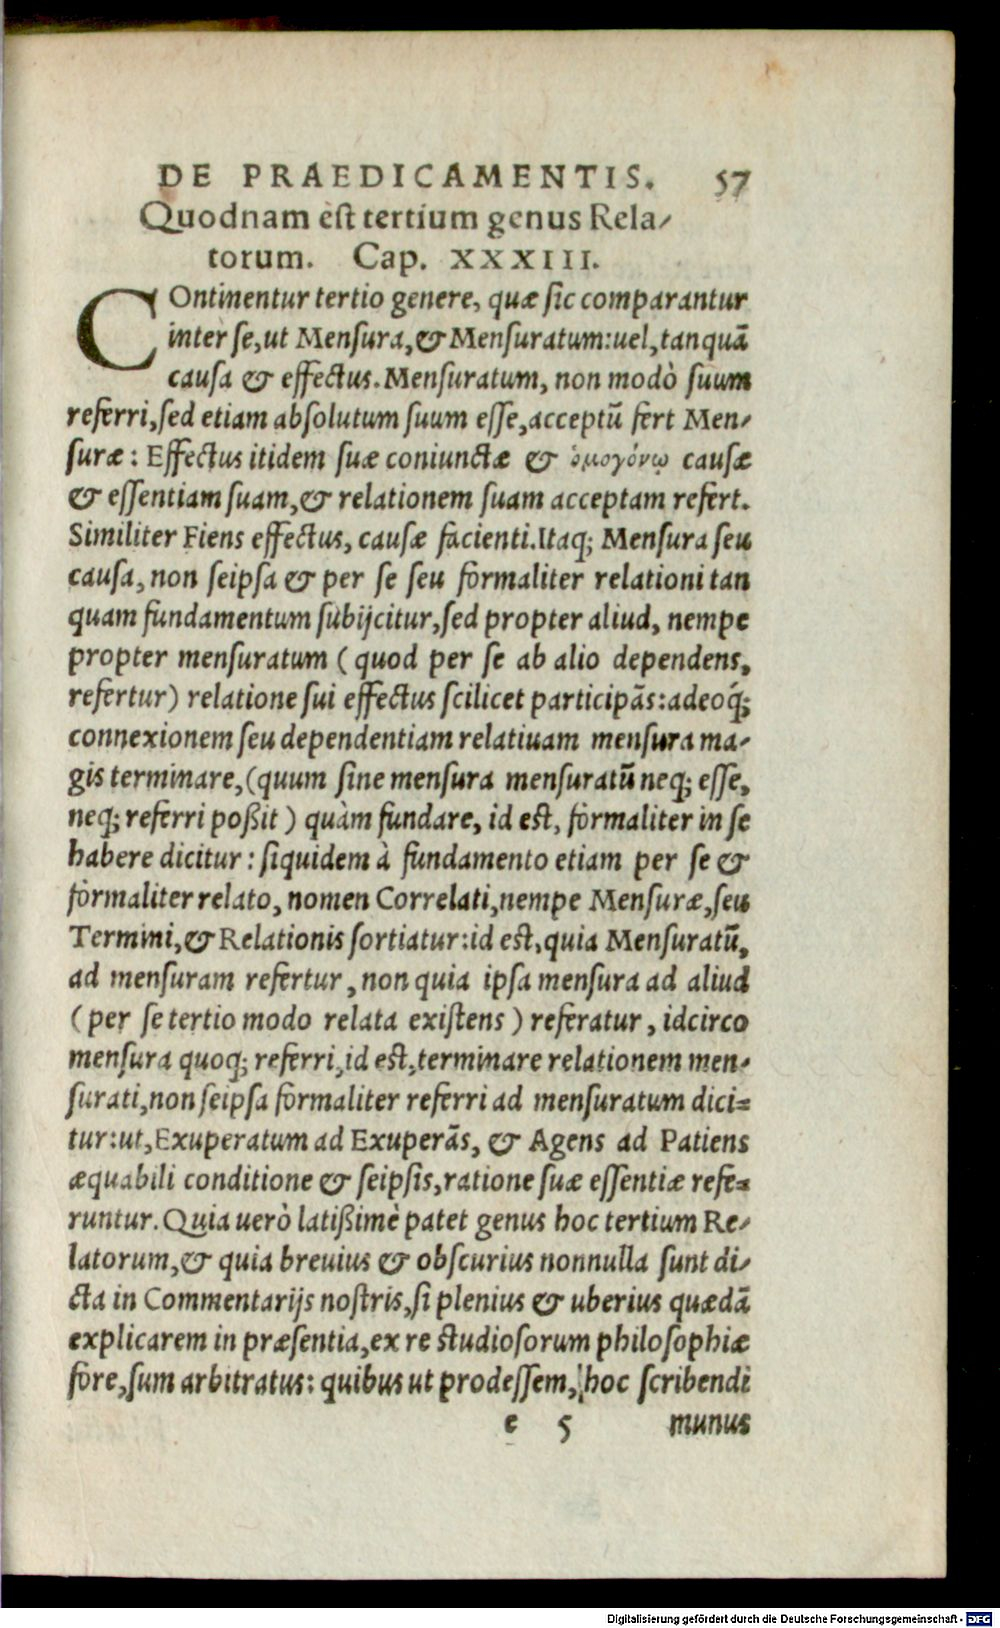 DE PRAEDICAMENTIS. 57
Quodnam est tertium genus Rela-
torum. Cap. XXXIII.
COntinentur tertio genere, quæ sic comparantur
inter se, ut Mensura, & Mensuratum: uel, tanquā
causa & effectus. Mensuratum, non modò suum
referri, sed etiam absolutum suum esse, acceptū fert Men-
suræ: Effectus itidem suæ coniunctæ & ὁμογόνῳ causæ
& essentiam suam, & relationem suam acceptam refert.
Similiter Fiens effectus, causæ facienti. Itaq; Mensura seu
causa, non seipsa & per se seu formaliter relationi tan
quam fundamentum subijcitur, sed propter aliud, nempe
propter mensuratum ( quod per se ab alio dependens,
refertur) relatione sui effectus scilicet participās: adeoq́;
connexionem seu dependentiam relatiuam mensura ma-
gis terminare, (quum sine mensura mensuratū neq; esse,
neq; referri poßit ) quàm fundare, id est, formaliter in se
habere dicitur: siquidem à fundamento etiam per se &
formaliter relato, nomen Correlati, nempe Mensuræ, seu
Termini, & Relationis sortiatur: id est, quia Mensuratū,
ad mensuram refertur, non quia ipsa mensura ad aliud
( per se tertio modo relata existens ) referatur, idcirco
mensura quoq; referri, id est, terminare relationem men-
surati, non seipsa formaliter referri ad mensuratum dici=
tur: ut, Exuperatum ad Exuperās, & Agens ad Patiens
æquabili conditione & seipsis, ratione suæ essentiæ refe=
runtur. Quia uerò latißimè patet genus hoc tertium Re-
latorum, & quia breuius & obscurius nonnulla sunt di-
cta in Commentarijs nostris, si plenius & uberius quædā
explicarem in præsentia, ex re studiosorum philosophiæ
fore, sum arbitratus: quibus ut prodessem, hoc scribendi
e 5 munus
Digitalisierung gefördert durch die Deutsche Forschungsgemeinschaft - DFG